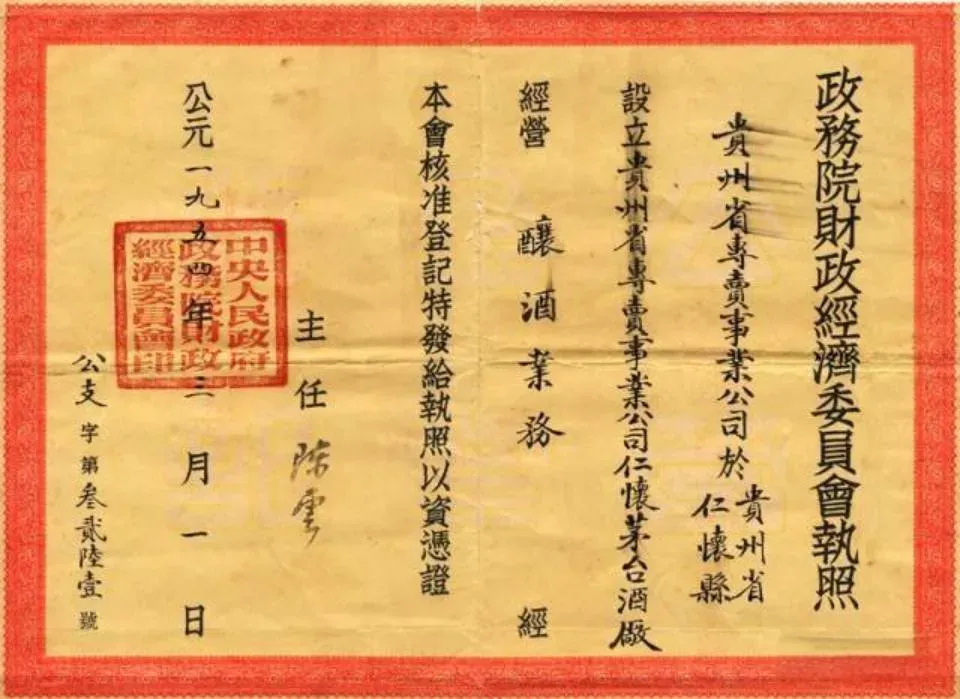 政務院財政經濟委員會執照
貴州省專賣事業公司於貴州省仁懷縣
設立貴州省專賣事業公司仁懷茅台酒廠
經營 釀酒業務 經
本會核准登記特發給執照以資憑證
主任 陳雲
公元一九五四年三月一日
中央人民政府
政務院財政
經濟委員會印
公支字第叁貳陸壹號